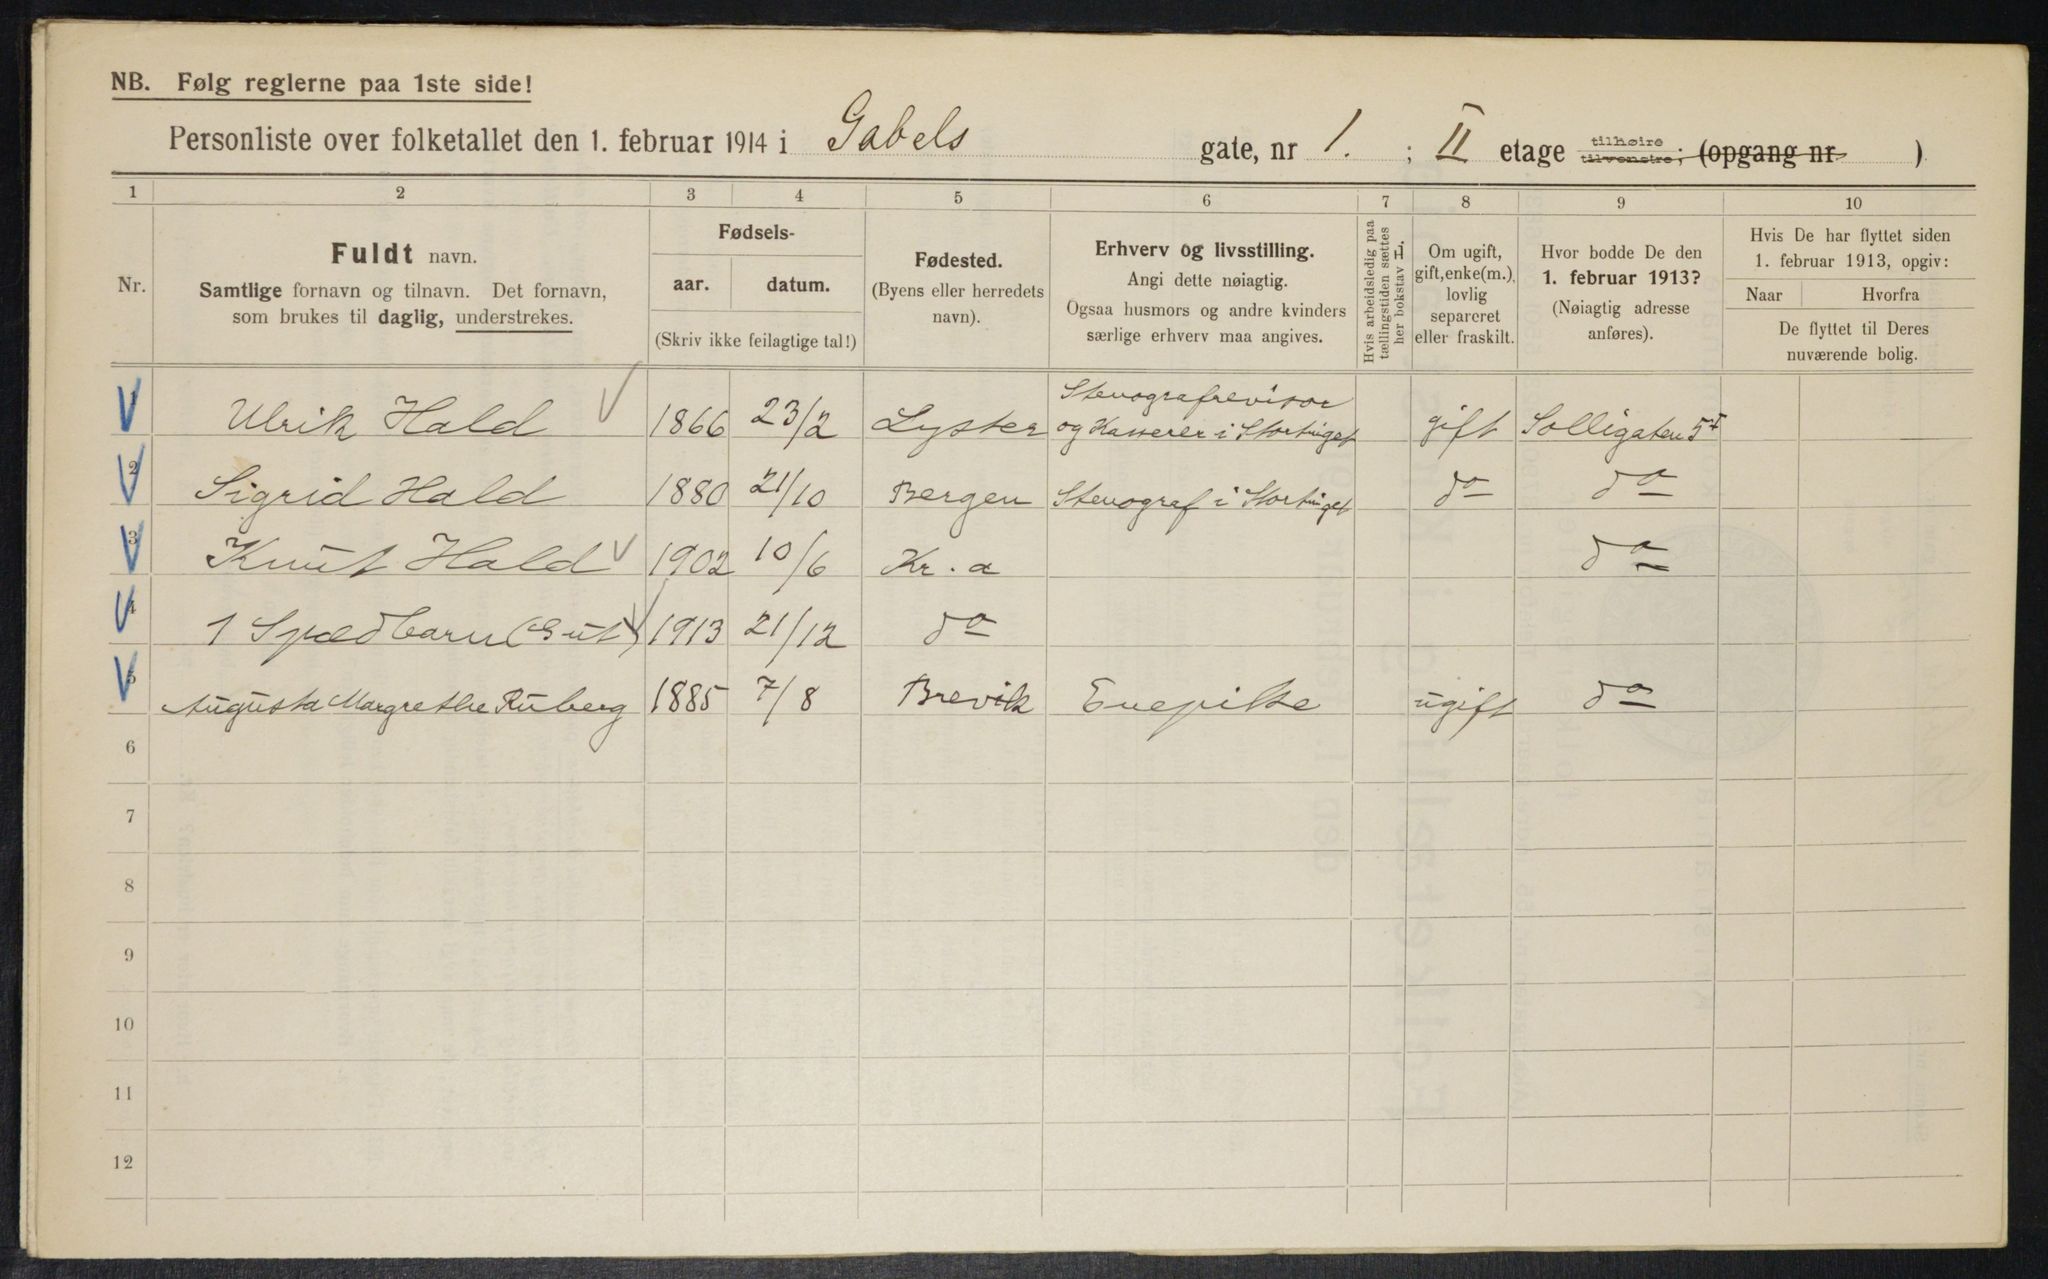 NB. Følg reglerne paa 1ste side!
Personliste over folketallet den 1. februar 1914 i Gabels gate, nr 1. ; II etage tilhøire tilvenstre; (opgang nr )
1 2 3 4 5 6 7 8 9 10
Nr.
Fuldt navn.
Samtlige fornavn og tilnavn. Det fornavn,
som brukes til daglig, understrekes.
Fødsels-
aar. datum.
(Skriv ikke feilagtige tal!)
Fødested.
(Byens eller herredets
navn).
Erhverv og livsstilling.
Angi dette nøiagtig.
Ogsaa husmors og andre kvinders
særlige erhverv maa angives.
Hvis arbeidsledig paa
tællingstiden sættes
her bokstav L.
Om ugift,
gift, enke(m.),
lovlig
separeret
eller fraskilt.
Hvor bodde De den
1. februar 1913?
(Nøiagtig adresse
anføres).
Hvis De har flyttet siden
1. februar 1913, opgiv:
Naar Hvorfra
De flyttet til Deres
nuværende bolig.
1 Ulrik Hald 1866 23/2 Lyster Stenografrevisor og Kasserer i Stortinget gift Solligaten 5 I
2 Sigrid Hald 1880 21/10 Bergen Stenograf i Stortinget do do
3 Knut Hald 1902 10/6 Kr.a do
4 1 Spædbarn (Gut) 1913 21/12 do
5 Augusta Margrethe Ruberg 1885 7/8 Brevik Enepike ugift do
6
7
8
9
10
11
12